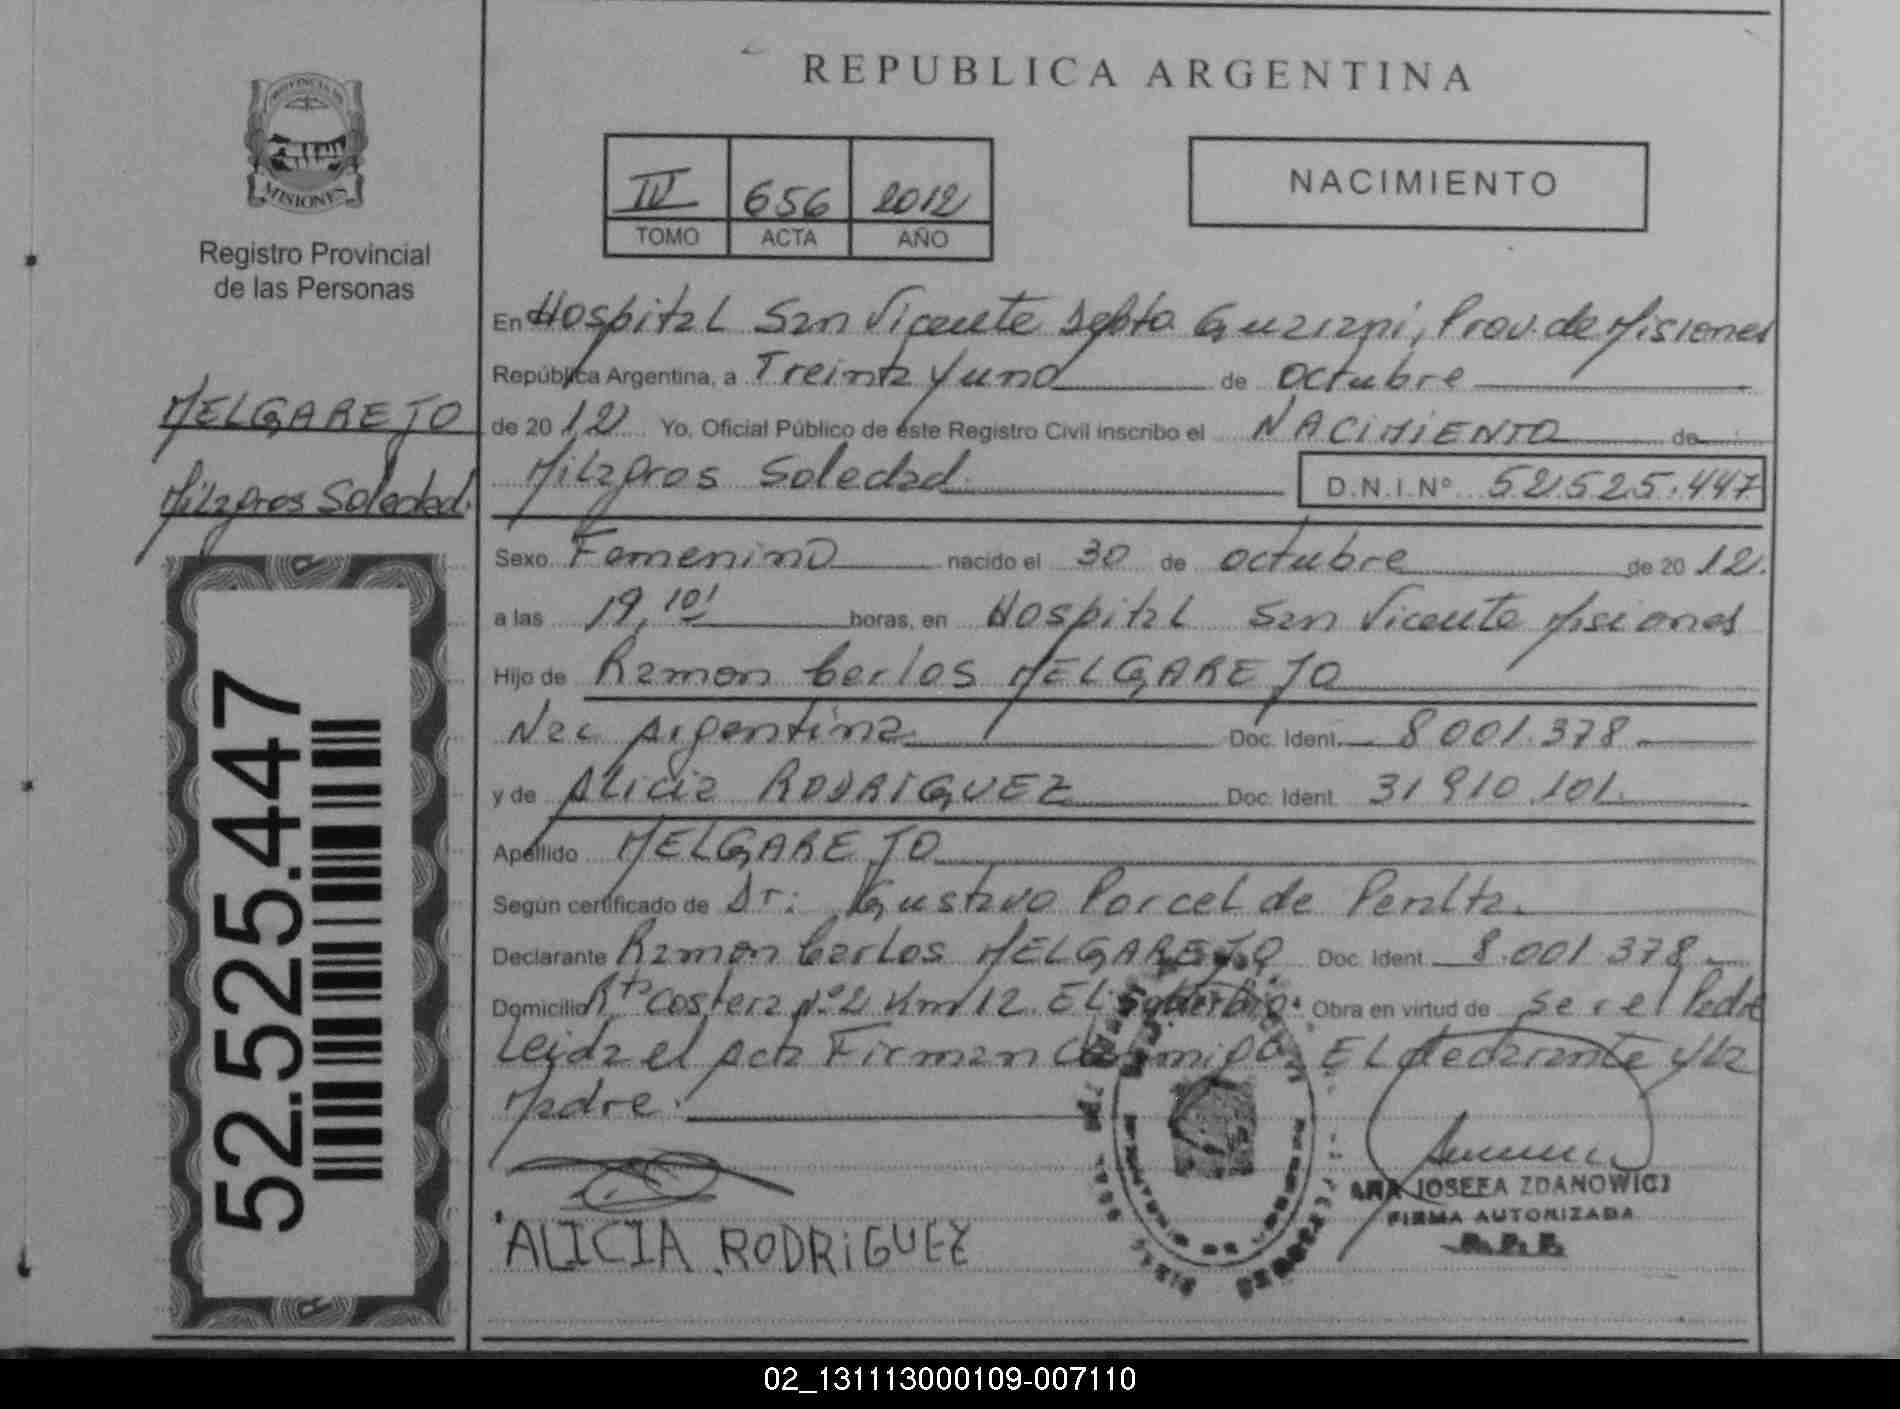 REPUBLICA ARGENTINA
PROVINCIA DE
MISIONES
Registro Provincial
de las Personas
MELGAREJO
Milagros Soledad.
52.525.447
IV 656 2012
TOMO ACTA AÑO
NACIMIENTO
En Hospital San Vicente Depto Guarani, Prov. de Misiones
República Argentina, a Treinta y uno de octubre
de 20 12 Yo, Oficial Público de este Registro Civil inscribo el NACIMIENTO de
Milagros Soledad. D.N.I.Nº 52.525.447
Sexo Femenino nacido el 30 de octubre de 20 12.
a las 19,10' horas, en Hospital San Vicente Misiones
Hijo de Ramon Carlos MELGAREJO
Nac Argentina Doc. Ident. 8001.378
y de Alicia RODRIGUEZ Doc. Ident. 31910.101
Apellido MELGAREJO
Según certificado de Dr: Gustavo Porcel de Peralta.
Declarante Ramon Carlos MELGAREJO Doc. Ident. 8.001 378
Domicilio Rta Costera Nº2 Km 12. El Soberbio. Obra en virtud de ser el Padre
Leida el Acta Firman Conmigo El declarante y la
Madre.
ALICIA RODRiGUEZ
JOSEFA ZDANOWICZ
FIRMA AUTORIZADA
R.P.P.
02_131113000109-007110